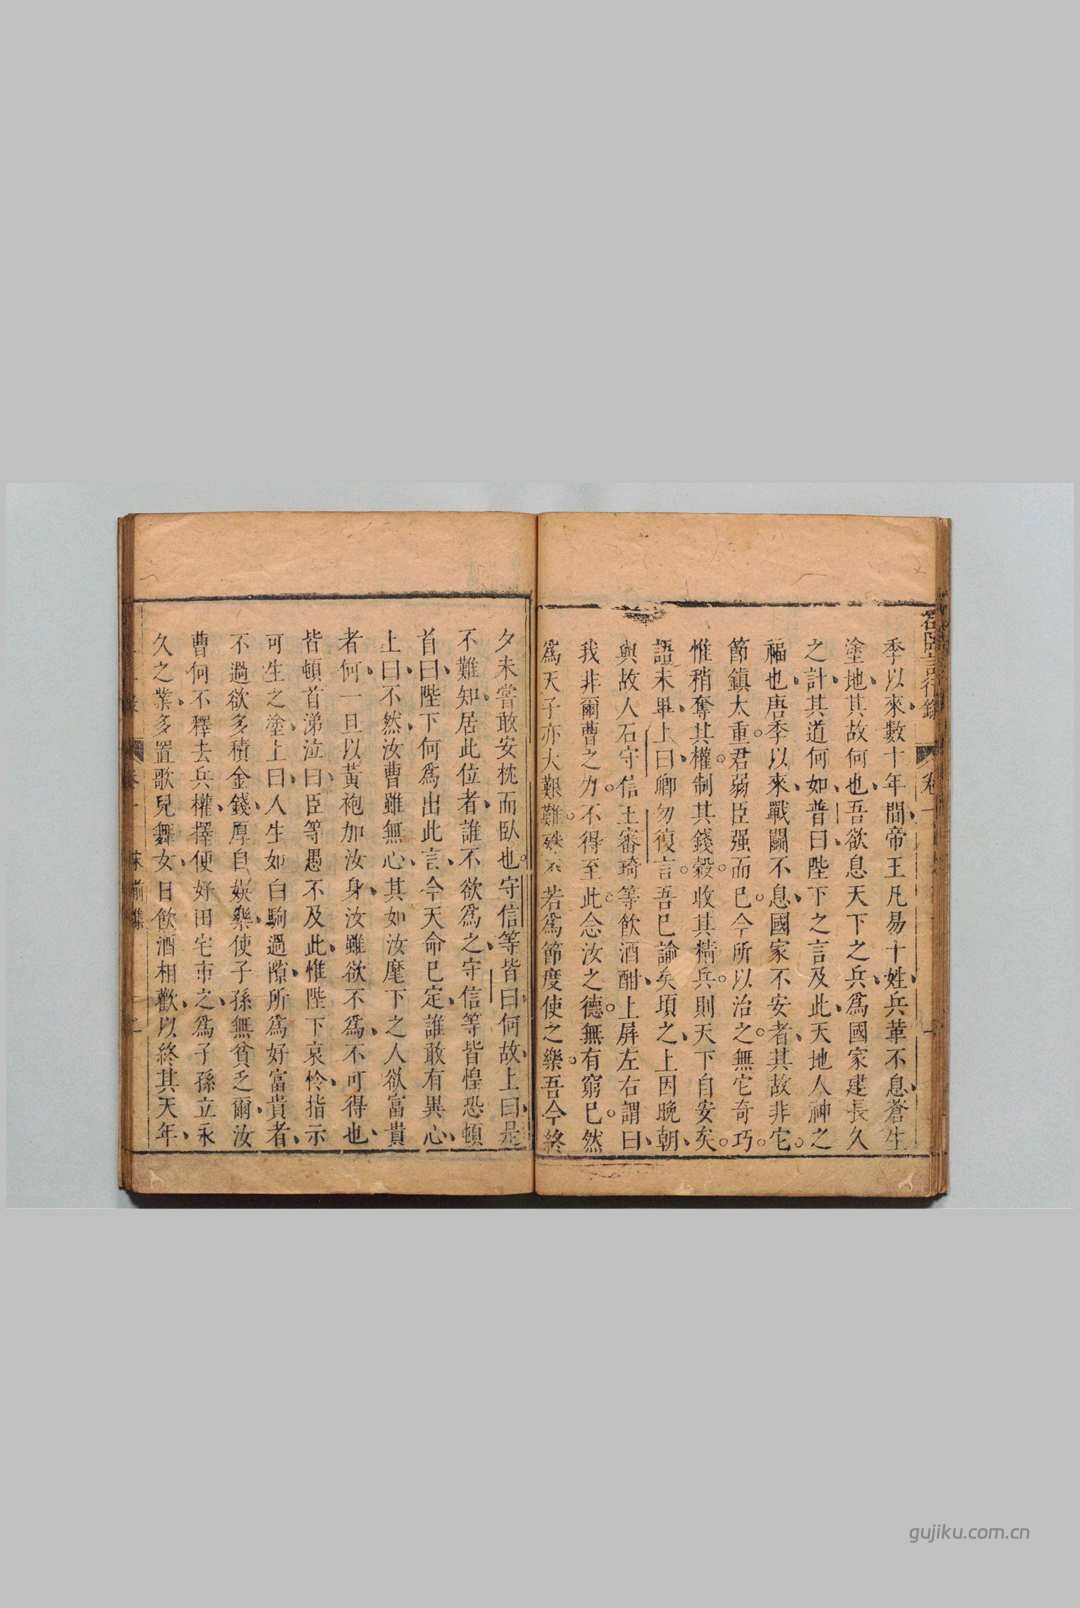 季以來數十年間帝王凡易十姓兵革不息蒼生
塗地其故何也吾欲息天下之兵爲國家建長久
之計其道何如普曰陛下之言及此天地人神之
福也唐季以來戰鬬不息國家不安者其故非它
節鎮太重君弱臣强而已今所以治之無它奇巧
惟稍奪其權制其錢穀收其精兵則天下自安矣
語未畢上曰卿勿復言吾已諭矣頃之上因晚朝
與故人石守信王審琦等飲酒酣上屏左右謂曰
我非爾曹之力不得至此念汝之德無有窮已然
爲天子亦大艱難殊不若爲節度使之樂吾今終
夕未嘗敢安枕而臥也守信等皆曰何故上曰是
不難知居此位者誰不欲爲之守信等皆惶恐頓
首曰陛下何爲出此言今天命已定誰敢有異心
上曰不然汝曹雖無心其如汝麾下之人欲富貴
者何一旦以黃袍加汝身汝雖欲不爲不可得也
皆頓首涕泣曰臣等愚不及此惟陛下哀怜指示
可生之塗上曰人生如白駒過隙所爲好富貴者
不過欲多積金錢厚自娛樂使子孫無貧乏爾汝
曹何不釋去兵權擇便好田宅市之爲子孫立永
久之業多置歌兒舞女日飲酒相歡以終其天年
卷一
gujiku.com.cn